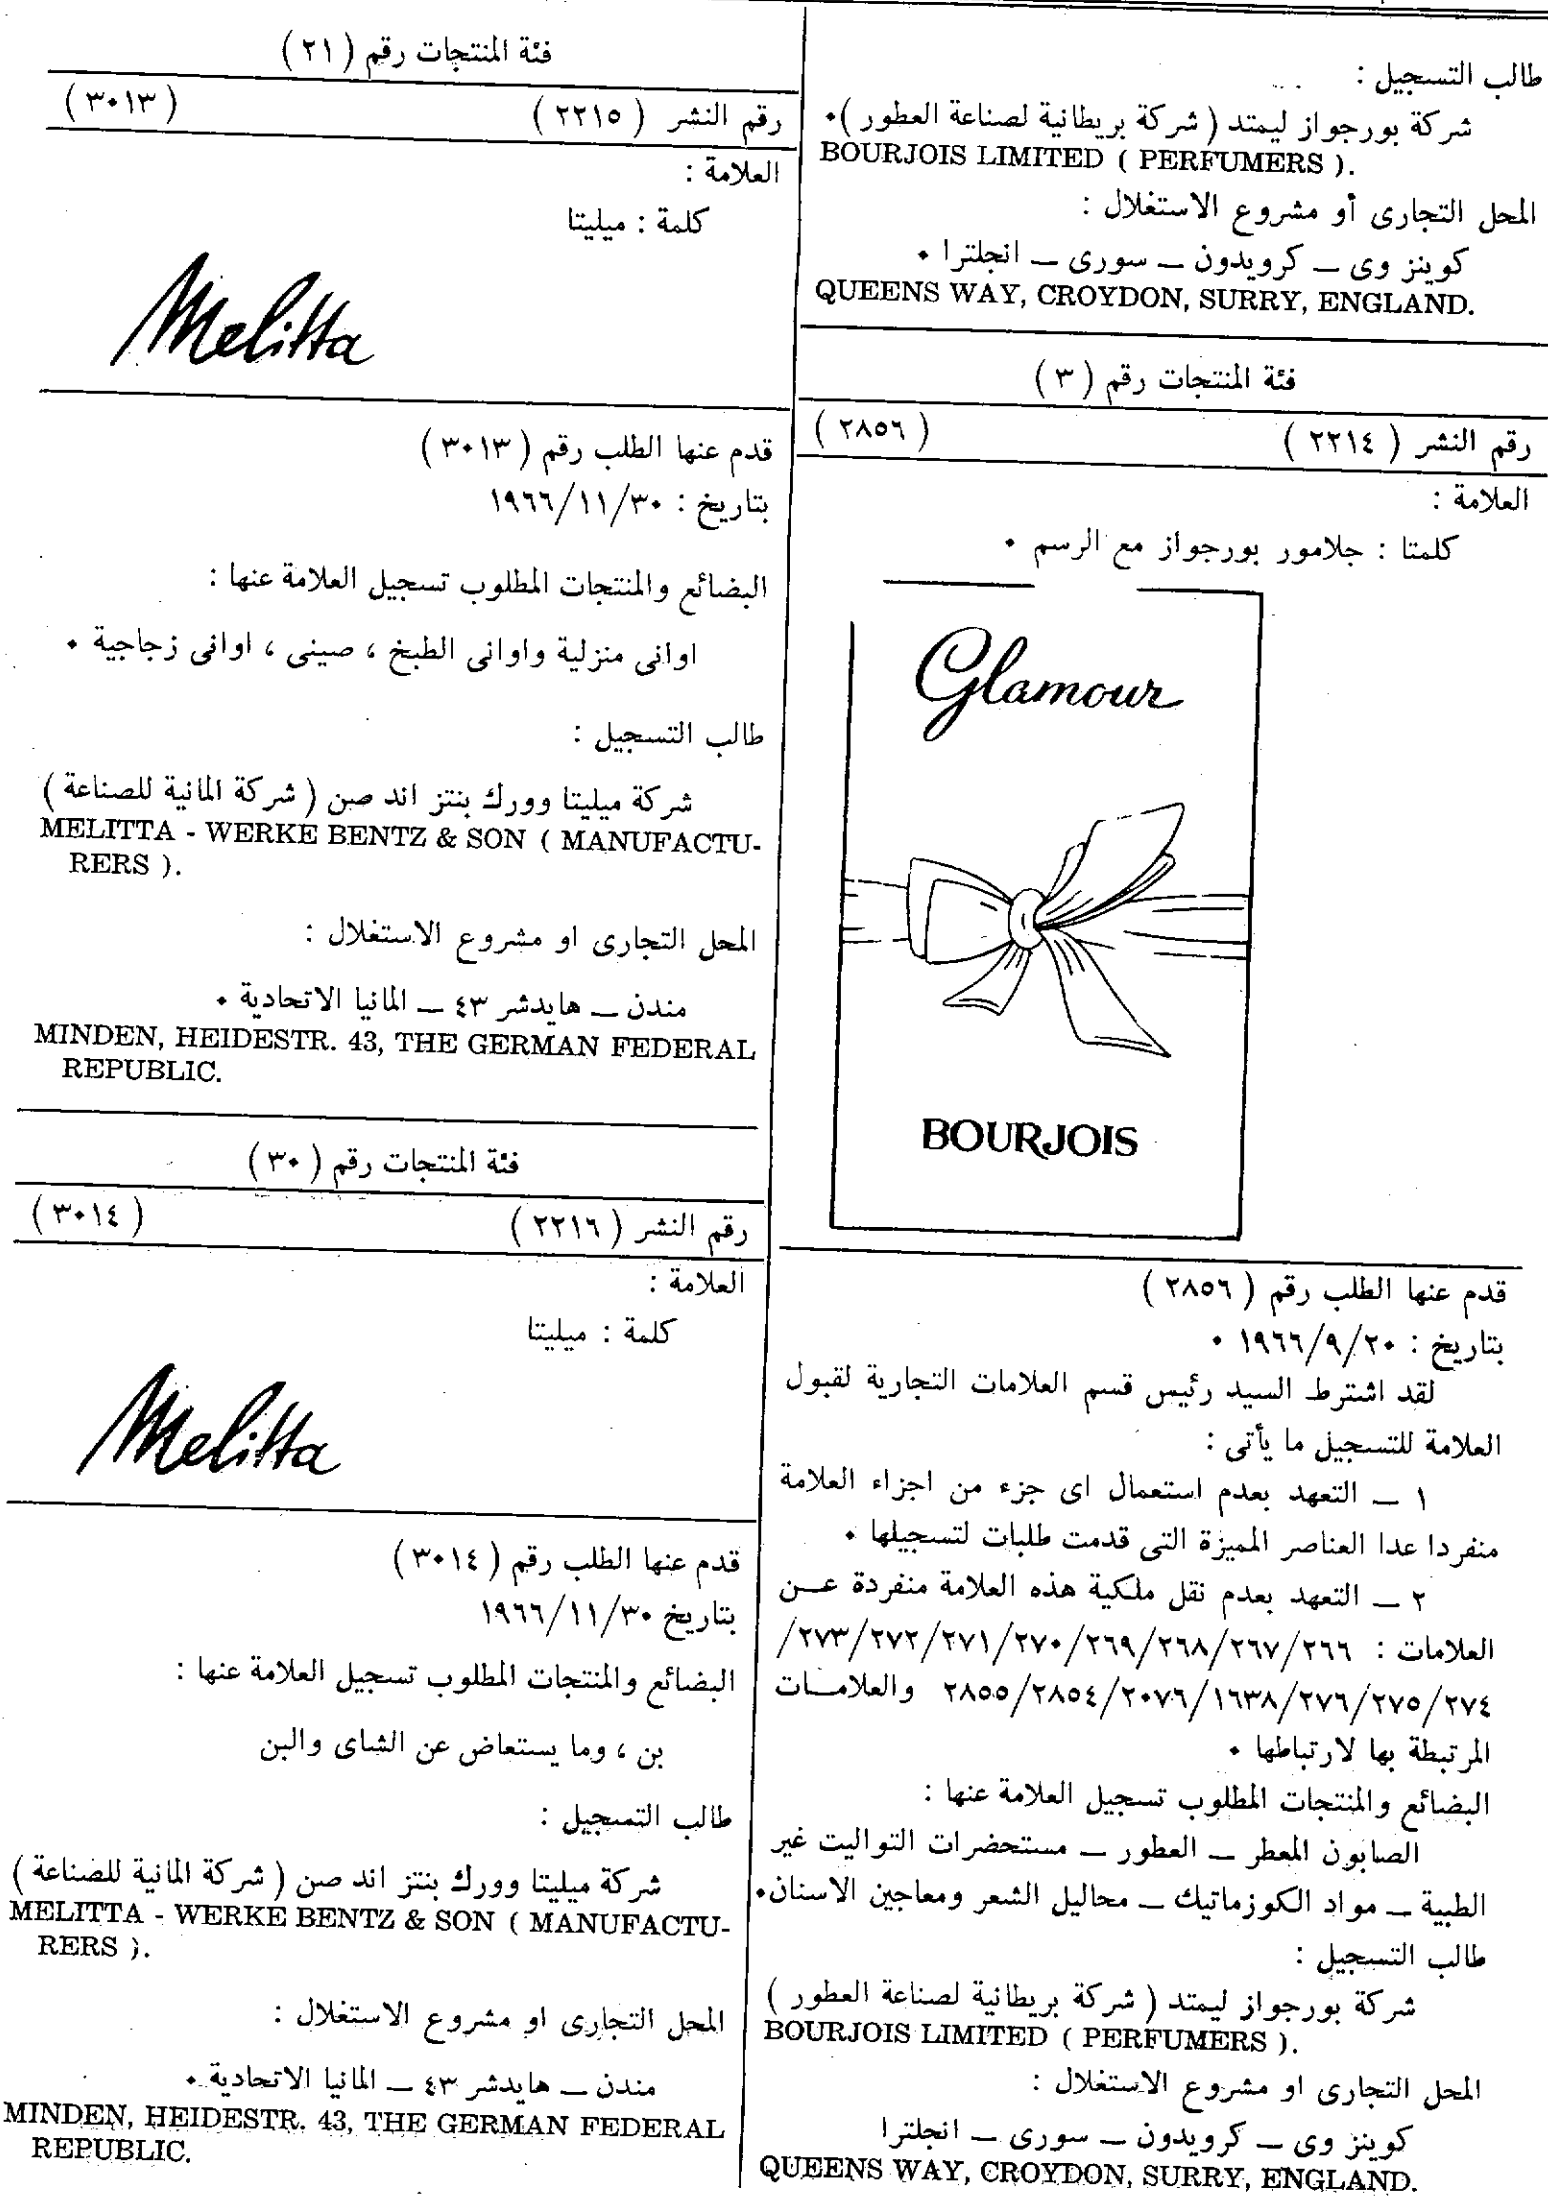 طالب التسجيل :
شركة بورجواز ليمتد ( شركة بريطانية لصناعة العطور )٠
BOURJOIS LIMITED ( PERFUMERS ).
المحل التجارى أو مشروع الاستغلال :
كوينز وى — كرويدون — سورى — انجلترا ٠
QUEENS WAY, CROYDON, SURRY, ENGLAND.
فئة المنتجات رقم ( ٣ )
رقم النشر ( ٢٢١٤ ) ( ٢٨٥٦ )
العلامة :
كلمتا : جلامور بورجواز مع الرسم ٠
Glamour
BOURJOIS
قدم عنها الطلب رقم ( ٢٨٥٦ )
بتاريخ : ١٩٦٦/٩/٢٠ ٠
لقد اشترط السيد رئيس قسم العلامات التجارية لقبول
العلامة للتسجيل ما يأتى :
١ — التعهد بعدم استعمال اى جزء من اجزاء العلامة
منفردا عدا العناصر المميزة التى قدمت طلبات لتسجيلها ٠
٢ — التعهد بعدم نقل ملكية هذه العلامة منفردة عن
العلامات : ٢٦٦/٢٦٧/٢٦٨/٢٦٩/٢٧٠/٢٧١/٢٧٢/٢٧٣/
٢٧٤/٢٧٥/٢٧٦/١٦٣٨/٢٠٧٦/٢٨٥٤/٢٨٥٥ والعلامات
المرتبطة بها لارتباطها ٠
البضائع والمنتجات المطلوب تسجيل العلامة عنها :
الصابون المعطر — العطور — مستحضرات التواليت غير
الطبية — مواد الكوزماتيك — محاليل الشعر ومعاجين الاسنان٠
طالب التسجيل :
شركة بورجواز ليمتد ( شركة بريطانية لصناعة العطور )
BOURJOIS LIMITED ( PERFUMERS ).
المحل التجارى او مشروع الاستغلال :
كوينز وى — كرويدون — سورى — انجلترا
QUEENS WAY, CROYDON, SURRY, ENGLAND.
فئة المنتجات رقم ( ٢١ )
رقم النشر ( ٢٢١٥ ) ( ٣٠١٣ )
العلامة :
كلمة : ميليتا
Melitta
قدم عنها الطلب رقم ( ٣٠١٣ )
بتاريخ : ١٩٦٦/١١/٣٠
البضائع والمنتجات المطلوب تسجيل العلامة عنها :
اوانى منزلية واوانى الطبخ ، صينى ، اوانى زجاجية ٠
طالب التسجيل :
شركة ميليتا وورك بنتز اند صن ( شركة المانية للصناعة )
MELITTA - WERKE BENTZ & SON ( MANUFACTU-
RERS ).
المحل التجارى او مشروع الاستغلال :
مندن — هايدشر ٤٣ — المانيا الاتحادية ٠
MINDEN, HEIDESTR. 43, THE GERMAN FEDERAL
REPUBLIC.
فئة المنتجات رقم ( ٣٠ )
رقم النشر ( ٢٢١٦ ) ( ٣٠١٤ )
العلامة :
كلمة : ميليتا
Melitta
قدم عنها الطلب رقم ( ٣٠١٤ )
بتاريخ ١٩٦٦/١١/٣٠
البضائع والمنتجات المطلوب تسجيل العلامة عنها :
بن ، وما يستعاض عن الشاى والبن
طالب التسجيل :
شركة ميليتا وورك بنتز اند صن ( شركة المانية للصناعة )
MELITTA - WERKE BENTZ & SON ( MANUFACTU-
RERS ).
المحل التجارى او مشروع الاستغلال :
مندن — هايدشر ٤٣ — المانيا الاتحادية ٠
MINDEN, HEIDESTR. 43, THE GERMAN FEDERAL
REPUBLIC.